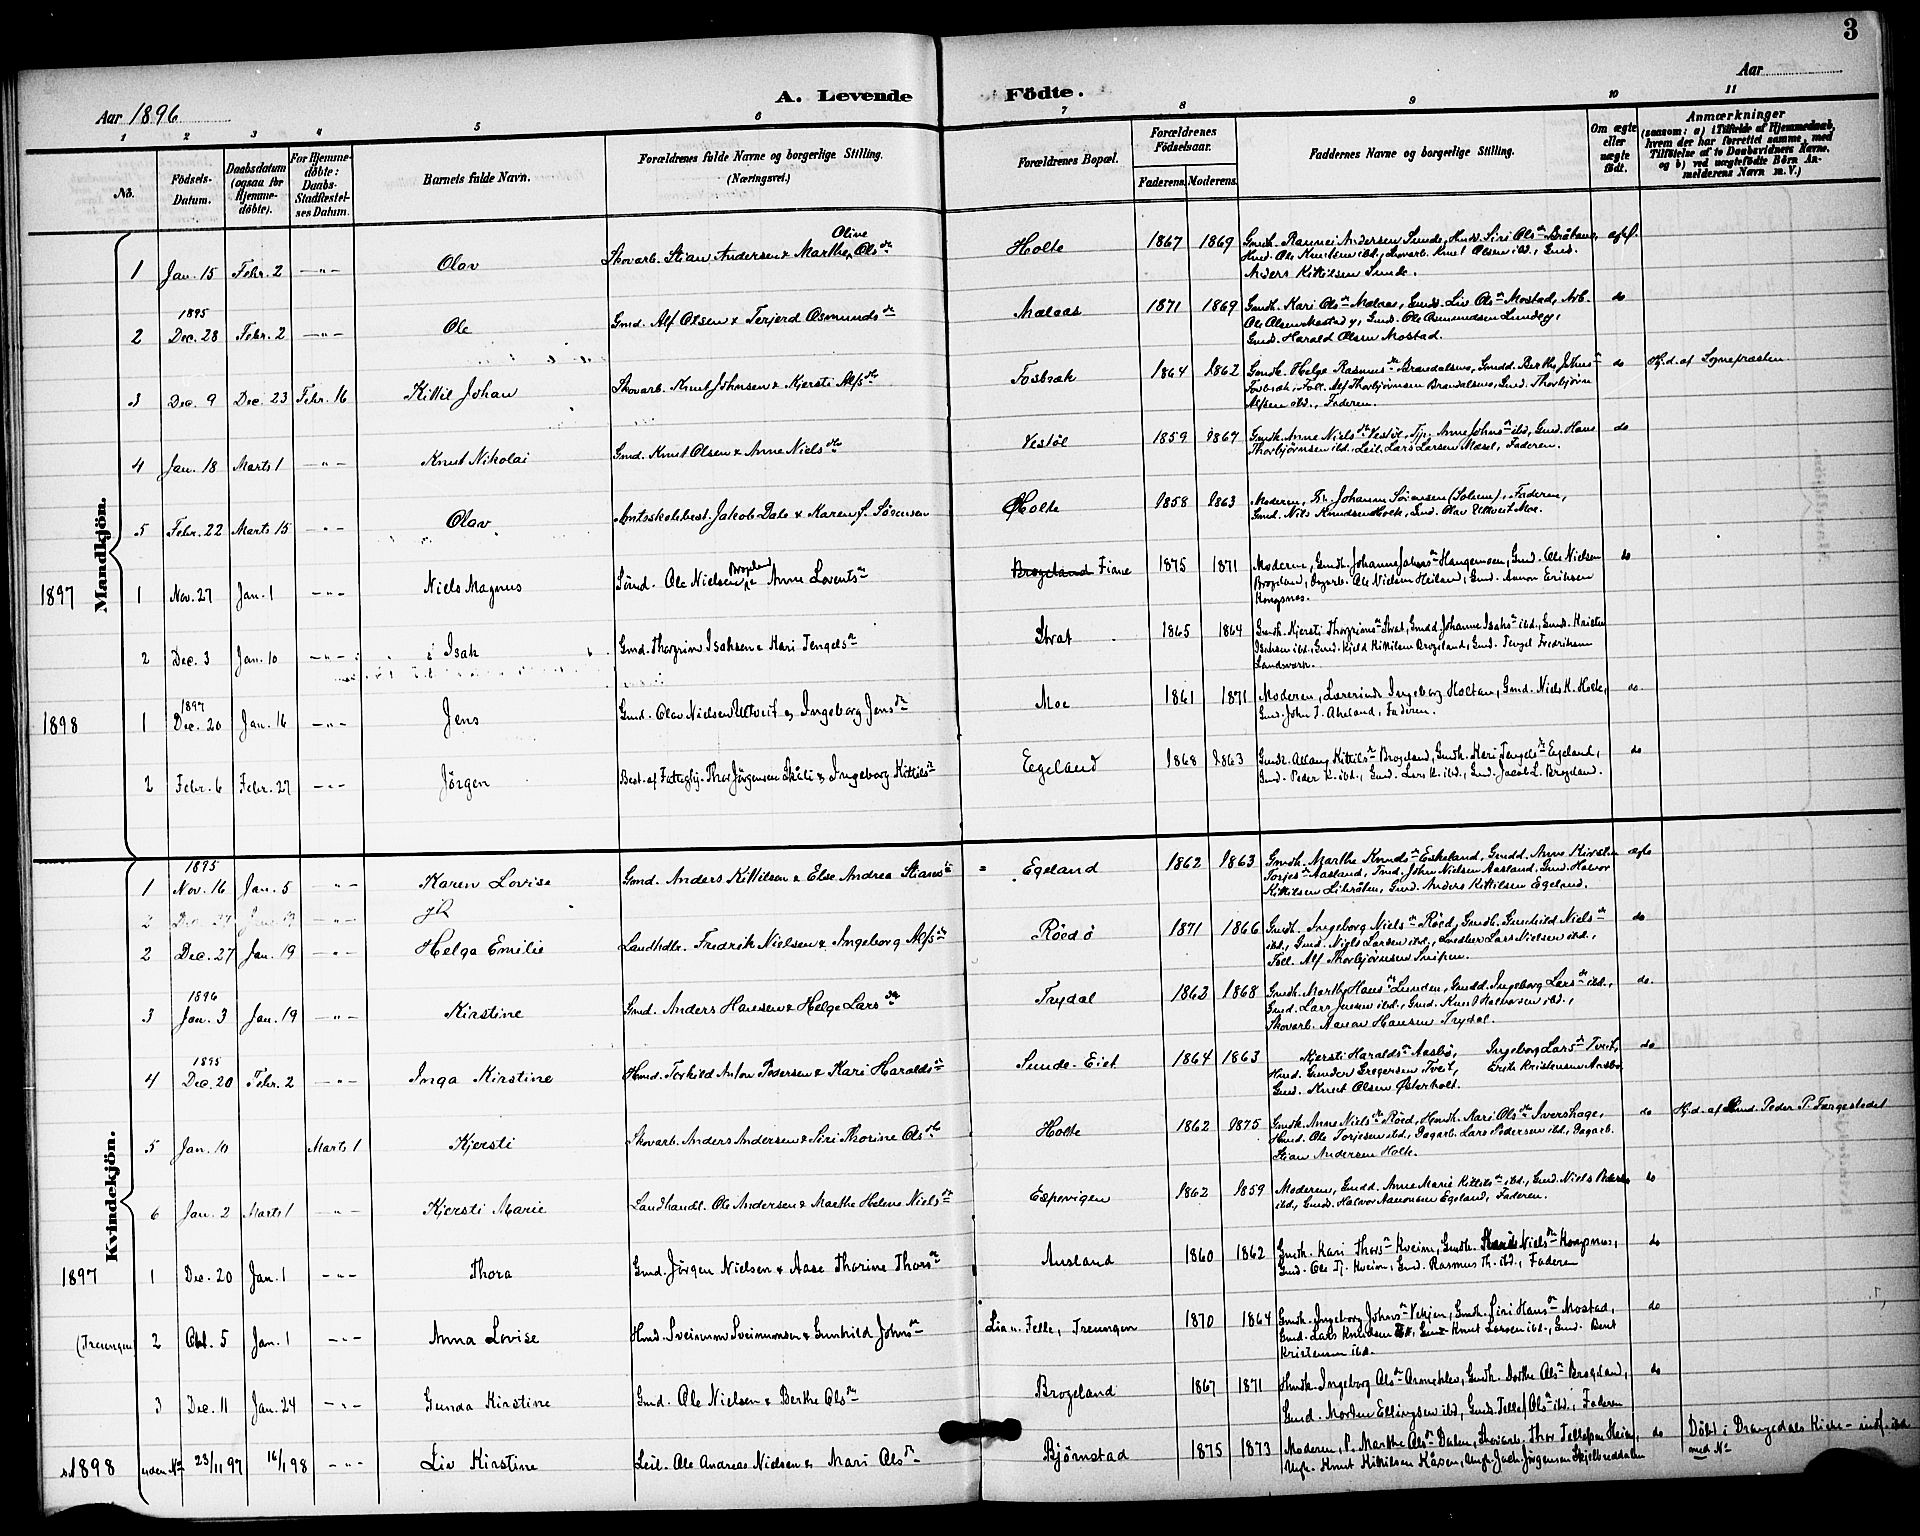 3
Aar 1896
A. Levende Födte.
Aar
1 2 3 4 5 6 7 8 9 10 11
No.
Födsels-Datum.
Daabsdatum (ogsaa for Hjemme-döbte).
For Hjemme-döbte: Daabs-Stadfæstel-ses Datum.
Barnets fulde Navn.
Forældrenes fulde Navne og borgerlige Stilling. (Næringsvei.)
Forældrenes Bopæl.
Forældrenes Födselsaar.
Faderens. Moderens.
Faddernes Navne og borgerlige Stilling.
Om ægte eller uægte födt.
Anmærkninger
(saasom: a) i Tilfælde af Hjemmedaab, hvem der har forrettet samme, med Tilföielse af to Daabsvidners Navne, og b) ved uægtefödte Börn An-melderens Navn m. V.)
Mandkjön.
1 Jan. 15 Febr. 2 -"- Olav Skovarb. Stian Andersen & Marthe Olive Olsdr Holte 1867 1869
Hmd. Ole Knutsen ibd., Skovarb. Knut Olsen ibd., Gmd.
Anders Kittilsen Sunde.
2 1895 Dec. 28 Febr. 2 -"- Ole Gmd. Alf Olsen & Terjerd Osmundsdr Malaas 1871 1869 Gmdk. Kari Olsdr Malaas, Gmdd. Liv Olsdr Mostad, Arb. do
Gmd. Harald Olsen Mostad.
3 Dec. 9 Dec. 23 Febr. 16 Kittil Johan Skovarb. Knut Johnsen & Kjersti Alfsdr Fosbræk 1864 1862 do Hj.d. af Sognepræsten
Fosbræk, Foll. Alf Thorbjørnsen Brændalsmo, Gmd. Thorbjørn
Alfsen ibd., Faderen.
4 Jan. 18 Marts 1 -"- Knut Nikolai Gmd. Knut Olsen & Anne Nielsdr Vestöl 1859 1867 Gmdk. Anne Nielsdr Vestöl, Tjp. Anne Johnsdr ibd., Gmd. Hans do
Thorbjørnsen ibd., Leil. Lars Larsen Mæsel, Faderen.
5 Febr. 22 Marts 15 -"- Olav Amtsskolebest. Jakob Dale & Karen J. Sørensen Holte 1858 1863 Moderen, Johanne Sörensen (Solem), Faderen,
Gmd. Nils Knudsen Holte, Gmd. Olav Ultveit Moe.
1897 1 Nov. 27 Jan. 1 -"- Niels Magnus Sönd. Ole Nielsen Brogeland & Anne Loventsdr Brogeland Fiane 1875 1871 Moderen, Gmdk. Johanne Johnsdr Haugemoen, Gmd. Ole Nielsen do
Brogeland, Dagarb. Ole Nielsen Heiland, Gmd. Aanon Eriksen
Kongsnæs.
2 Dec. 3 Jan. 10 -"- Isak Gmd. Thorgrim Isaksen & Kari Tengelsdr Strat 1865 1864 Gmdk. Kjersti Thorgrimsdr Strat, Gmdd. Johanne Isaksdr ibd., Gmd. Kristen
Isaksen ibd., Gmd. Kjeld Kittilsen Brogeland, Gmd. Tengel Fredriksen
Landsværk.
1898 1 1897 Dec. 20 Jan. 16 -"- Jens Gmd. Olav Nielsen Ultveit og Ingeborg Jensdr Moe 1861 1871 Moderen, Lærerinde Ingeborg Holtan, Gmd. Niels K. Holte, do.
Gmd. John T. Akeland, Faderen.
2 Febr. 6 Febr. 27 -"- Jörgen Best. af Fattiggj. Thor Jörgensen Skåli & Ingeborg Kittilsdr Egeland 1868 1863 Gmdk. Aslaug Kittilsdr Brogeland, Gmdk. Kari Tengelsdr Egeland, do
Gmd. Peder K. ibd., Gmd. Lars K. ibd., Gmd. Jacob L. Brogeland.
Kvindekjön.
1 1895 Nov. 16 Jan. 5 "- Karen Lovise Gmd. Anders Kittilsen & Else Andrea Stiansdr Egeland 1862 1863 Gmdk. Marthe Knudsdr Eskeland, Gmdd. Anne Kirstin ægte
Torjesdr Aasland, Gmd. John Nielsen Aasland, Gmd. Halvor
Kittilsen Libråten, Gmd. Anders Kittilsen Egeland.
2 Dec. 27 Jan. 19 -"-
2 Dec. 27 Jan. 19 -"- Helga Emilie Landhdlr. Fredrik Nielsen & Ingeborg Alfsdr Röed ö 1871 1866 Gmdk. Ingeborg Nielsdr Röed, Gmdk. Gunhild Nielsdr do
ibd., Gmd. Niels Larsen ibd., Lars Nielsen ibd.,
Foll. Alf Thorbjørnsen
3 1896 Jan. 3 Jan. 19 -"- Kirstine Gmd. Anders Hansen & Helge Larsdr Trydal 1863 1868 Gmdk. Marthe Hansdr Lunden, Gmdd. Ingeborg Larsdr ibd., do.
Gmd. Lars Jensen ibd., Gmd. Knut Halvorsen ibd.,
Skovarb. Aanon Hansen Trydal.
4 1895 Dec. 20 Febr. 2 -"- Inga Kirstine Hmd. Torkild Anton Pedersen & Kari Haraldsdr Sunde-Eiet 1864 1863 Kjersti Haraldsdr Aasbø, Ingeborg Larsdr Tveit, do
Hmd. Gunder Gregersen Tveit, Erik Kristensen Aasbø
Gmd. Knut Olsen Østerholt.
5 Jan. 10 Marts 1 Kjersti Skovarb. Anders Andersen & Siri Thorine Olsdr Holte 1862 1875 Gmdk. Anne Nielsdr Röed, Hmdk. Kari Olsdr Ivershage, do Hj.d. af Gmd. Peder P. Færgestedet
Hmd. Ole Torjesen ibd., Dagarb. Lars Pedersen ibd., Dagarb.
Stian Andersen Holte.
6 Jan. 2 Marts 1 -"- Kjersti Marie Landhandl. Ole Andersen & Marthe Helene Nielsdr Espevigen 1862 1859 Moderen, Gmdd. Anne Marie Kittilsdr ibd., Gmd. Niels Pedersen do
ibd., Gmd. Halvor Aanonsen Egeland, Faderen.
1897 1 Dec. 20 Jan. 1 -"- Thora Gmd. Jörgen Nielsen & Aase Thorine Thorsdr Ausland 1860 1862 Gmdk. Kari Thorsdr Kveim, Gmdk. Nielsdr Kongsnæs, do
Gmd. Ole Tj. Kveim, Gmd. Rasmus Th. ibd., Faderen
(Treungen) 2 Okt. 5 Jan. 1 -"- Anna Lovise Hmd. Sveinung Sveinungsen & Gunhild Johnsdr Lia u. Felle, Treungen 1870 1864 Gmdk. Ingeborg Johnsdr Vehjen, Gmdk. Siri Hansdr Mostad, do
Gmd. Lars Knudsen, Gmd. Knut Larsen ibd., Gmd. Bent
Kristensen ibd.
3 Dec. 11 Jan. 24 -"- Gunda Kirstine Gmd. Ole Nielsen & Berthe Olsdr Brogeland 1867 1871 Hmdk. Ingeborg Olsdr Aasmehlen, Gmdk. Dorthe Olsdr Brogeland, do
Gmd. Morten Ellingsen ibd., Gmds. Tellef Olsdr ibd., Faderen
1898 uden No 23/11 97 16/1 98 -"- Liv Kirstine Leil. Ole Andreas Nielsen & Mari Olsdr Bjørnstad 1875 1873 Moderen, P. Marthe Olsdr Dalen, Skovarb. Thor Tellefsen Heim, do Döbt i Drangedals Kirke – indf. ibd
Ungk. Knut Kittilsen Kåsen, Ungk. Jach. Jörgensen Skjelbreddalen med No